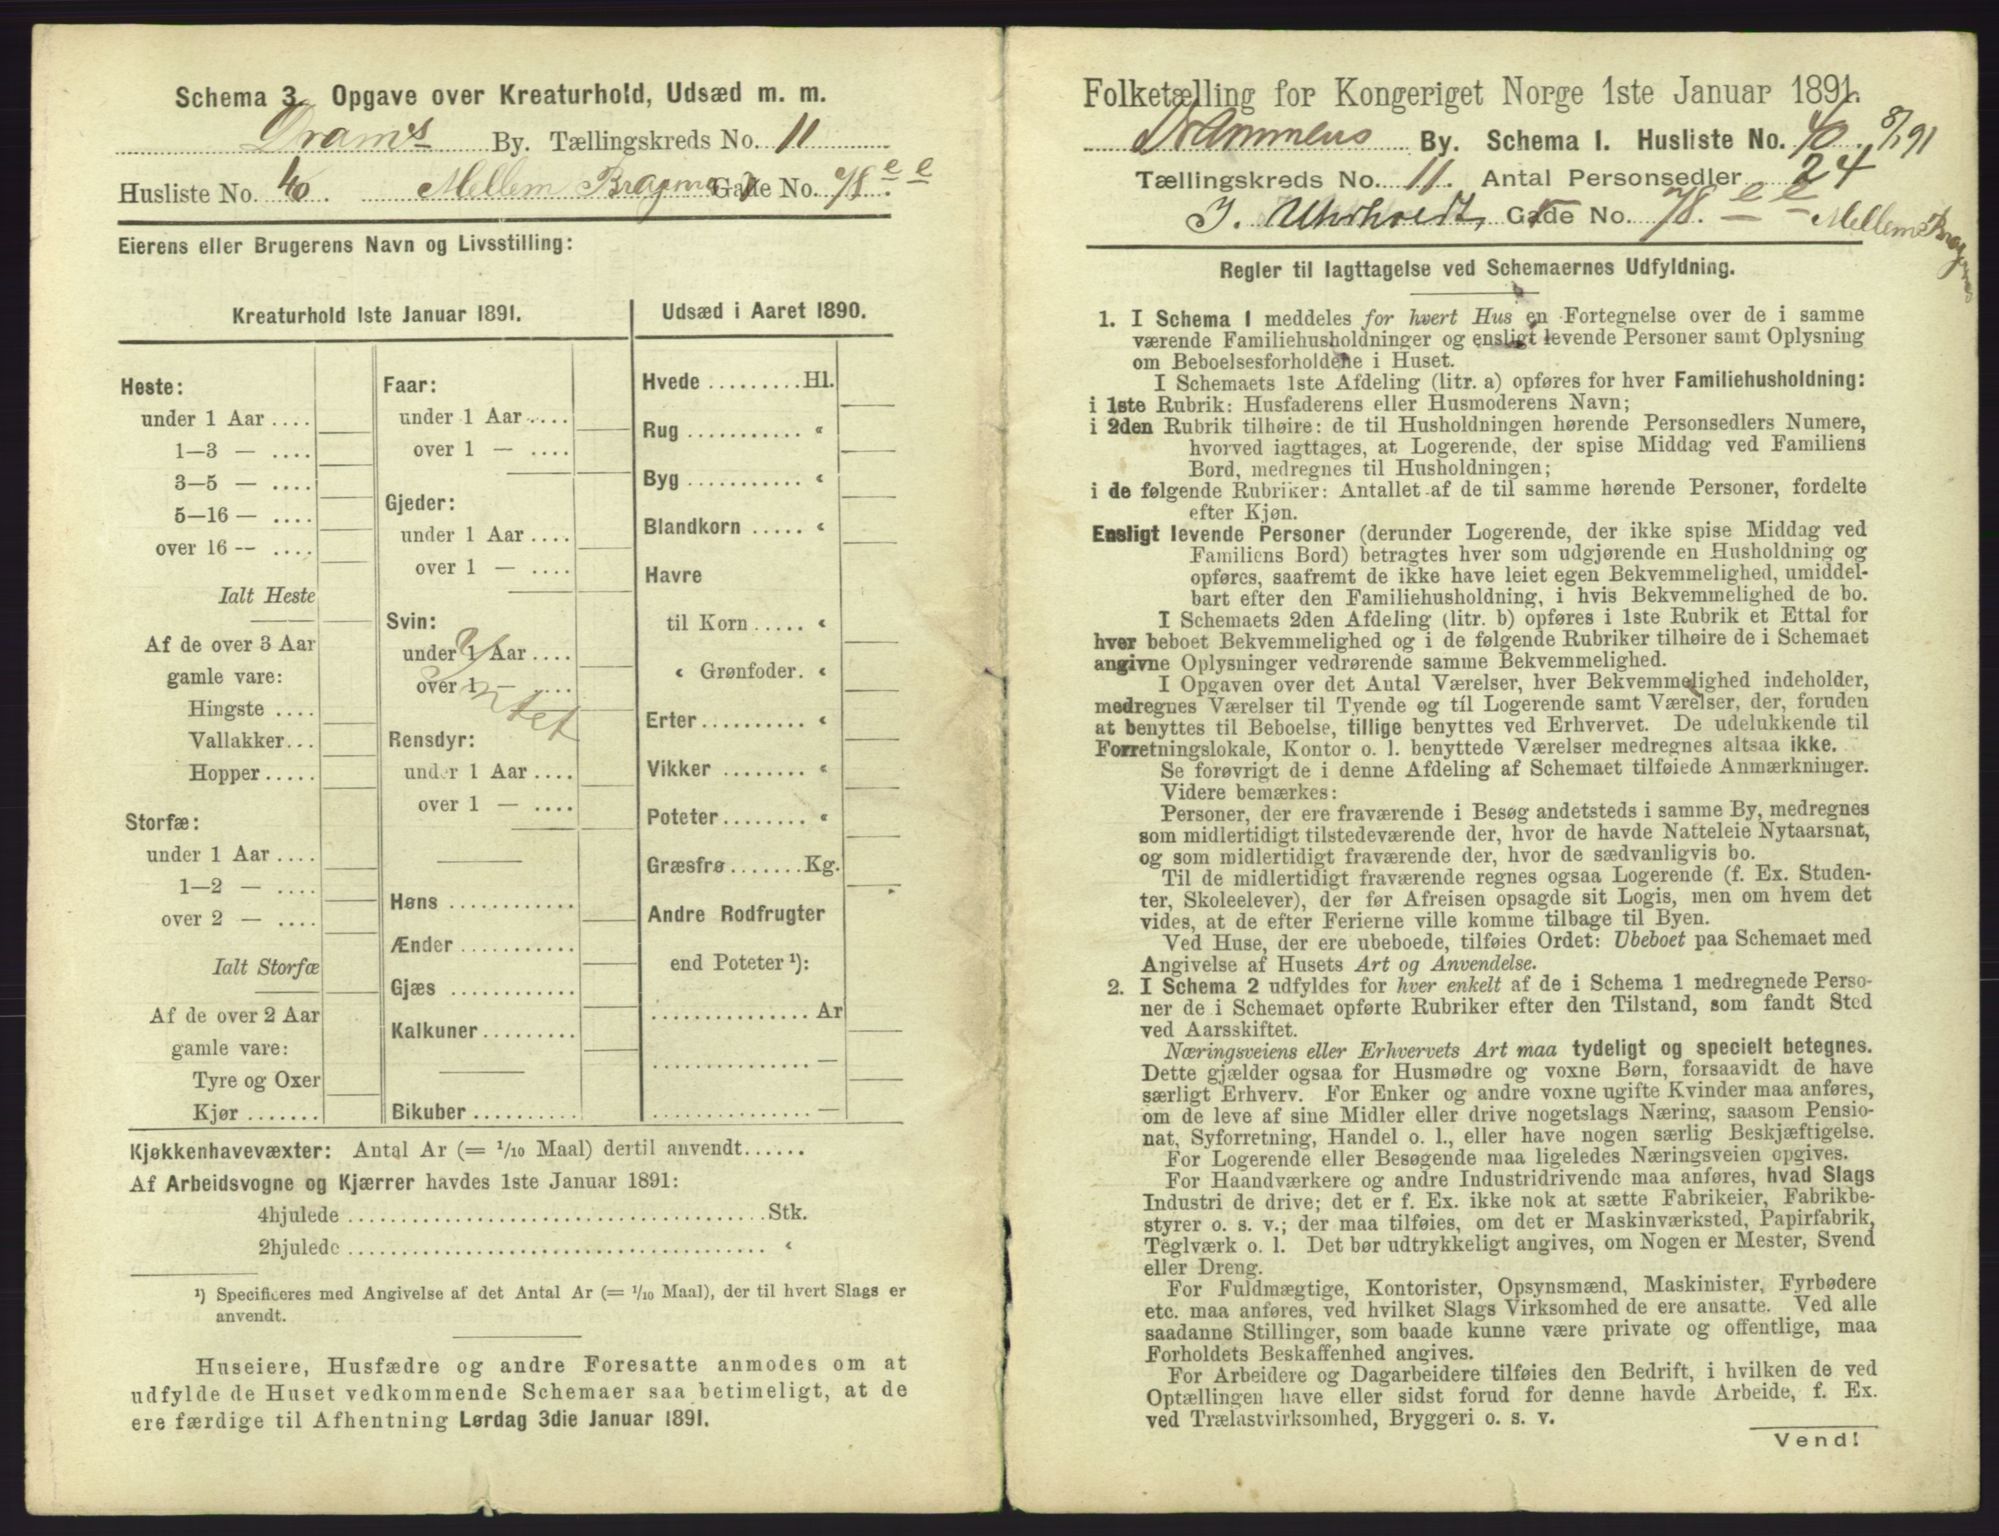 Schema 3. Opgave over Kreaturhold, Udsæd m. m.
Dram's By. Tællingskreds No. 11
Husliste No. 40. Mellem Bragernes Gade No. 78 e e
Eierens eller Brugerens Navn og Livsstilling:
Kreaturhold 1ste Januar 1891.
Heste:
under 1 Aar ....
1—3 — ....
3—5 — ....
5—16 — ....
over 16 -- ....
Ialt Heste
Af de over 3 Aar
gamle vare:
Hingste ....
Vallakker...
Hopper.....
Storfæ:
under 1 Aar ....
1—2 — ....
over 2 — ....
Ialt Storfæ
Af de over 2 Aar
gamle vare:
Tyre og Oxer
Kjør .......
Faar:
under 1 Aar ....
over 1 — ....
Gjeder:
under 1 Aar ....
over 1 — ....
Svin:
under 1 Aar ....
over 1 — ....
Intet
Rensdyr:
under 1 Aar ....
over 1 — ....
Høns ............
Ænder ...........
Gjæs ............
Kalkuner .........
Bikuber ..........
Udsæd i Aaret 1890.
Hvede .........Hl.
Rug ........... «
Byg ........... «
Blandkorn ..... «
Havre
til Korn ..... «
« Grønfoder. «
Erter ......... «
Vikker ........ «
Poteter ........ «
Græsfrø .......Kg.
Andre Rodfrugter
end Poteter ¹):
............... Ar
............... —
............... —
Kjøkkenhavevæxter: Antal Ar (= 1/10 Maal) dertil anvendt......
Af Arbeidsvogne og Kjærrer havdes 1ste Januar 1891:
4hjulede ......................................Stk.
2hjulede ...................................... «
¹) Specificeres med Angivelse af det Antal Ar (= 1/10 Maal), der til hvert Slags er
anvendt.
Huseiere, Husfædre og andre Foresatte anmodes om at
udfylde de Huset vedkommende Schemaer saa betimeligt, at de
ere færdige til Afhentning Lørdag 3die Januar 1891.
Folketælling for Kongeriget Norge 1ste Januar 1891.
Drammens By. Schema I. Husliste No. 40. 8/1 91
Tællingskreds No. 11. Antal Personsedler 24
J. Uhrholdt, Gade No. 78. e e Mellem Bragernes
Regler til Iagttagelse ved Schemaernes Udfyldning.
1. I Schema 1 meddeles for hvert Hus en Fortegnelse over de i samme
værende Familiehusholdninger og ensligt levende Personer samt Oplysning
om Beboelsesforholdene i Huset.
I Schemaets 1ste Afdeling (litr. a) opføres for hver Familiehusholdning:
i 1ste Rubrik: Husfaderens eller Husmoderens Navn;
i 2den Rubrik tilhøire: de til Husholdningen hørende Personsedlers Numere,
hvorved iagttages, at Logerende, der spise Middag ved Familiens
Bord, medregnes til Husholdningen;
i de følgende Rubriker: Antallet af de til samme hørende Personer, fordelte
efter Kjøn.
Ensligt levende Personer (derunder Logerende, der ikke spise Middag ved
Familiens Bord) betragtes hver som udgjørende en Husholdning og
opføres, saafremt de ikke have leiet egen Bekvemmelighed, umiddel-
bart efter den Familiehusholdning, i hvis Bekvemmelighed de bo.
I Schemaets 2den Afdeling (litr. b) opføres i 1ste Rubrik et Ettal for
hver beboet Bekvemmelighed og i de følgende Rubriker tilhøire de i Schemaet
angivne Oplysninger vedrørende samme Bekvemmelighed.
I Opgaven over det Antal Værelser, hver Bekvemmelighed indeholder,
medregnes Værelser til Tyende og til Logerende samt Værelser, der, foruden
at benyttes til Beboelse, tillige benyttes ved Erhvervet. De udelukkende til
Forretningslokale, Kontor o. l. benyttede Værelser medregnes altsaa ikke.
Se forøvrigt de i denne Afdeling af Schemaet tilføiede Anmærkninger.
Videre bemærkes:
Personer, der ere fraværende i Besøg andetsteds i samme By, medregnes
som midlertidigt tilstedeværende der, hvor de havde Natteleie Nytaarsnat,
og som midlertidigt fraværende der, hvor de sædvanligvis bo.
Til de midlertidigt fraværende regnes ogsaa Logerende (f. Ex. Studen-
ter, Skoleelever), der før Afreisen opsagde sit Logis, men om hvem det
vides, at de efter Ferierne ville komme tilbage til Byen.
Ved Huse, der ere ubeboede, tilføies Ordet: Ubeboet paa Schemaet med
Angivelse af Husets Art og Anvendelse.
2. I Schema 2 udfyldes for hver enkelt af de i Schema 1 medregnede Perso-
ner de i Schemaet opførte Rubriker efter den Tilstand, som fandt Sted
ved Aarsskiftet.
Næringsveiens eller Erhvervets Art maa tydeligt og specielt betegnes.
Dette gjælder ogsaa for Husmødre og voxne Børn, forsaavidt de have
særligt Erhverv. For Enker og andre voxne ugifte Kvinder maa anføres,
om de leve af sine Midler eller drive nogetslags Næring, saasom Pensio-
nat, Syforretning, Handel o. l., eller have nogen særlig Beskjæftigelse.
For Logerende eller Besøgende maa ligeledes Næringsveien opgives.
For Haandværkere og andre Industridrivende maa anføres, hvad Slags
Industri de drive; det er f. Ex. ikke nok at sætte Fabrikeier, Fabrikbe-
styrer o. s. v.; der maa tilføies, om det er Maskinværksted, Papirfabrik,
Teglværk o. l. Det bør udtrykkeligt angives, om Nogen er Mester, Svend
eller Dreng.
For Fuldmægtige, Kontorister, Opsynsmænd, Maskinister, Fyrbødere
etc. maa anføres, ved hvilket Slags Virksomhed de ere ansatte. Ved alle
saadanne Stillinger, som baade kunne være private og offentlige, maa
Forholdets Beskaffenhed angives.
For Arbeidere og Dagarbeidere tilføies den Bedrift, i hvilken de ved
Optællingen have eller sidst forud for denne havde Arbeide, f. Ex.
ved Trælastvirksomhed, Bryggeri o. s. v.
Vend!